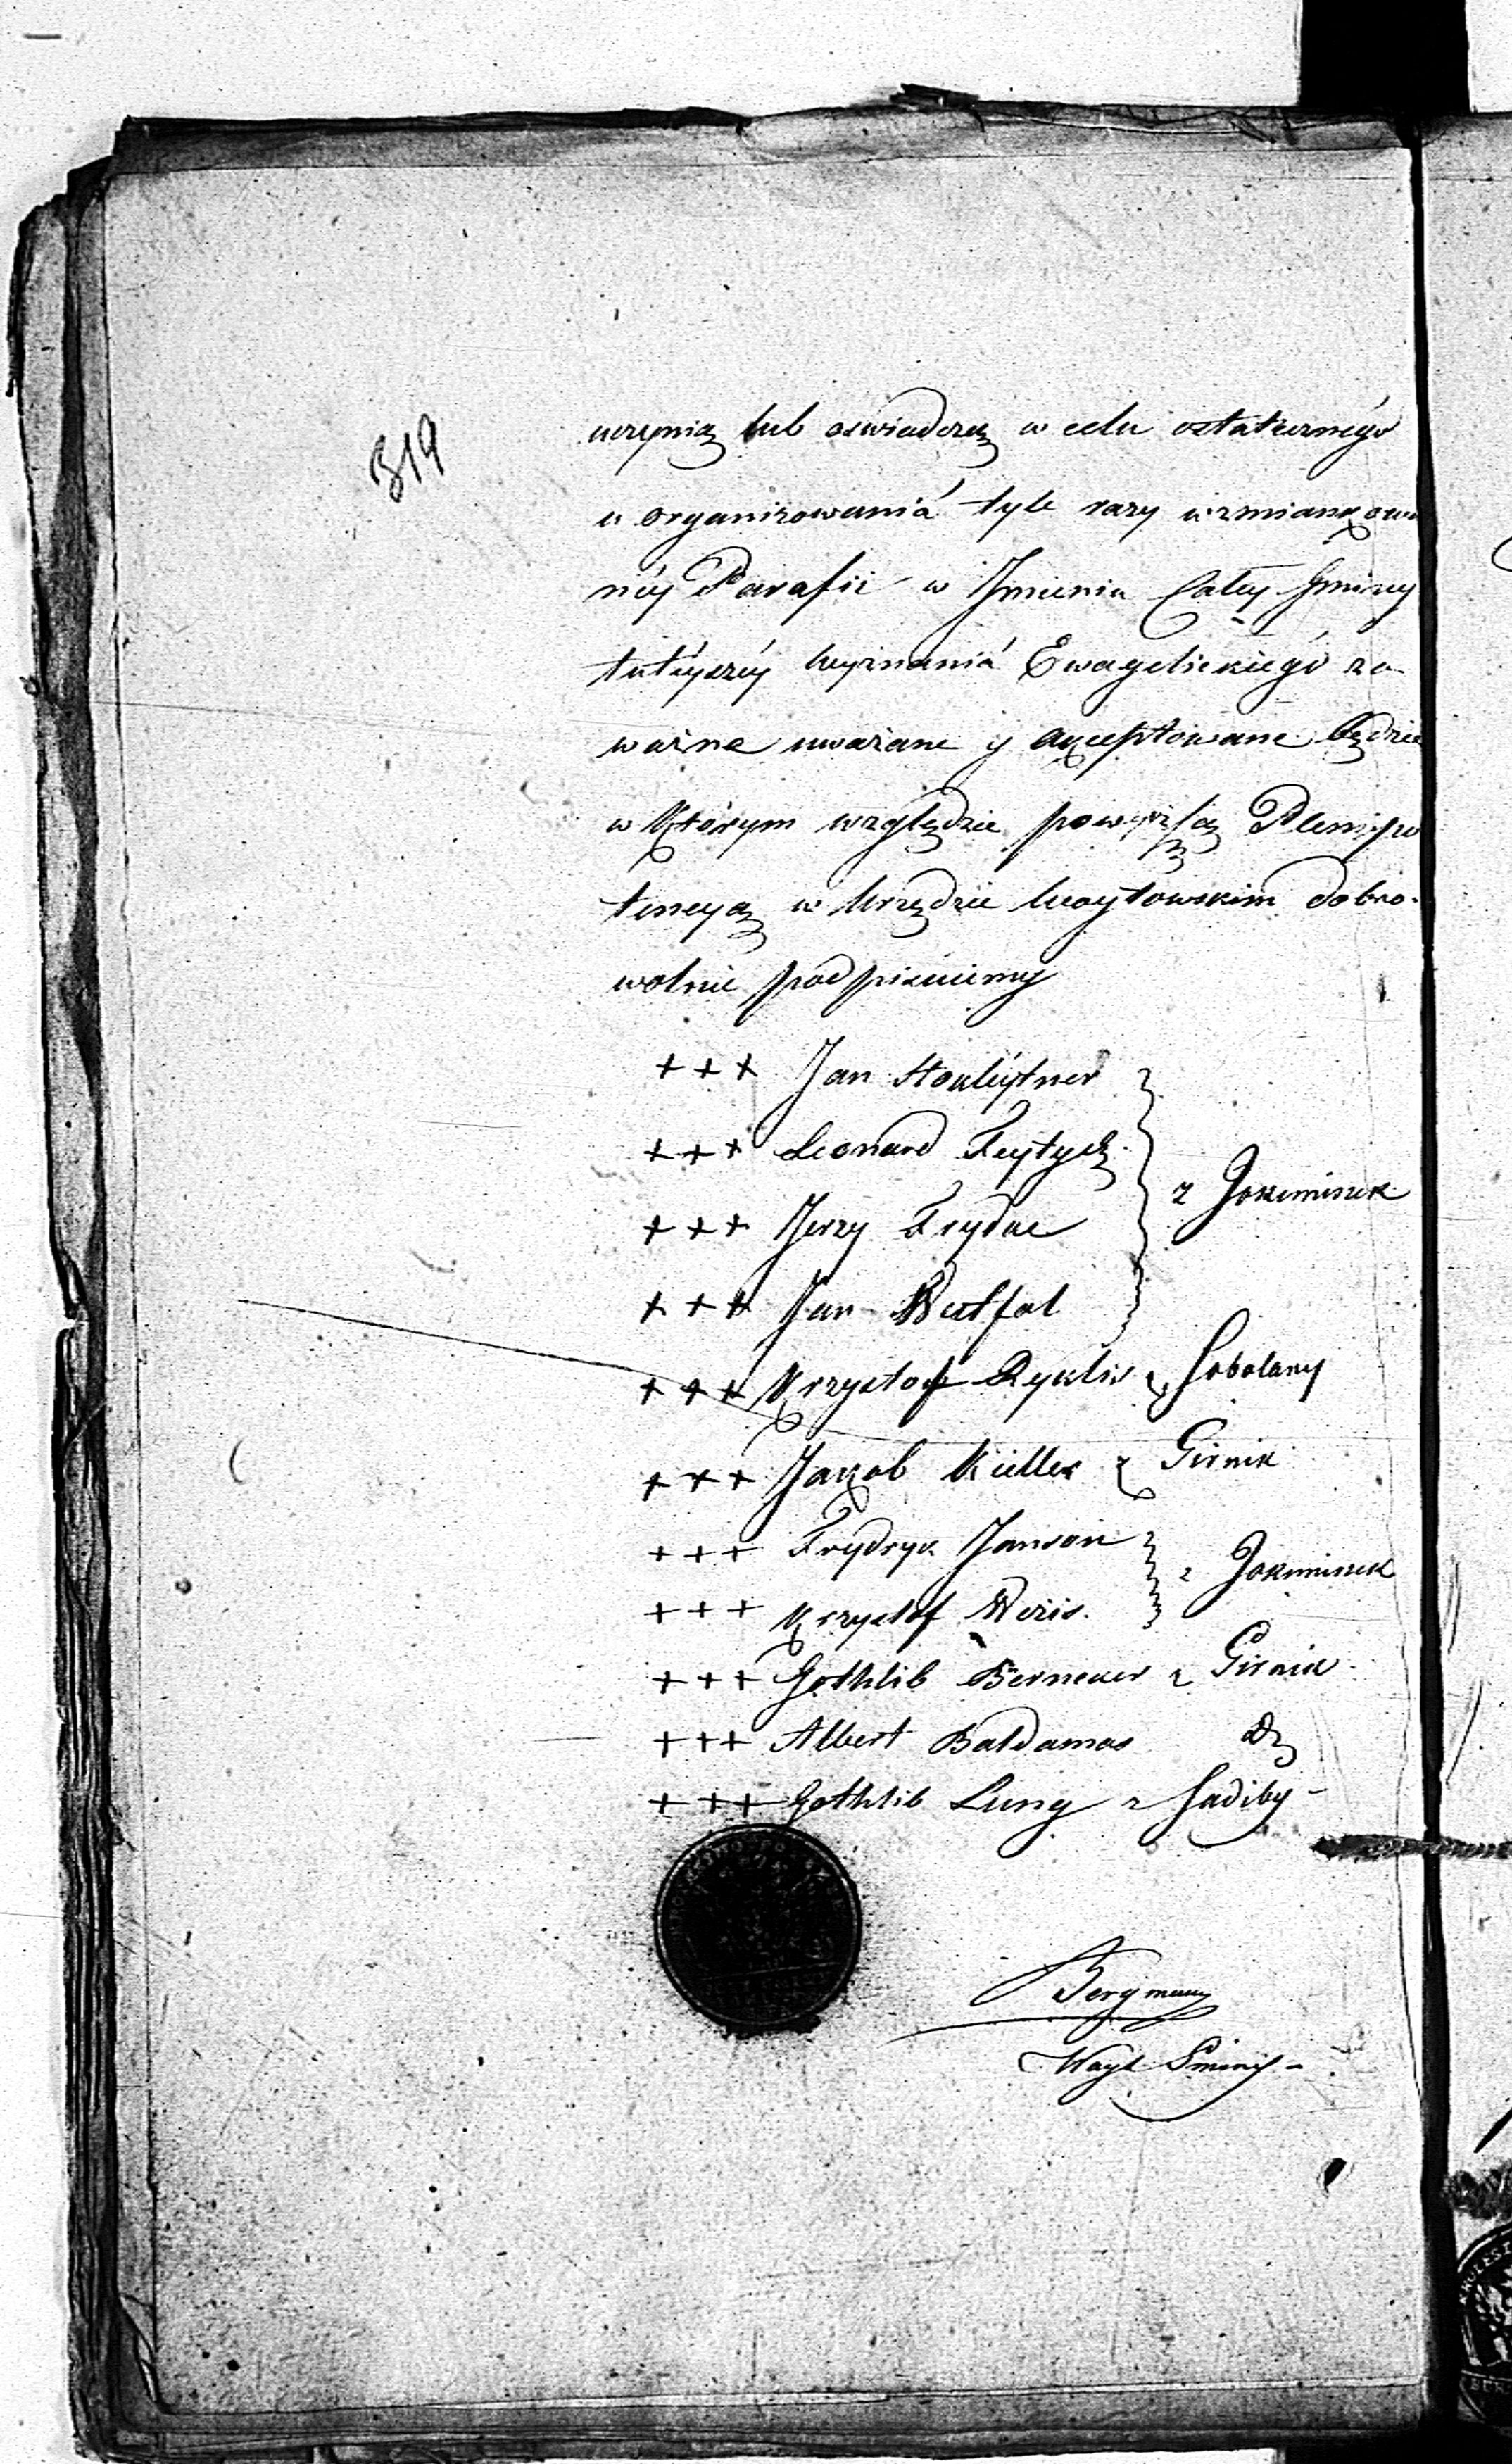 319
uczynią lub oswiadczą w celu ostatecznégo
u organizowaniá tyle razy wzmiankowa
néy Parafii w Jmieniu Całey Gminy
tutéyszéy wyznaniá Ewagelickiégo za
ważne uważane y akceptowane będzie
w którym względzie powyższą Plenipo
tencyą w Urzędzie Woytowskim dobro-
wolnie podpisuiemy
+++ Jan Stokleytner
+++ Leonard Feytych
+++ Jerzy Frydke
z Jokiminek
+++ Jan Westfal
+++ Krzysztof Ryklis z Sobolany
+++ Jakob Kieller z Girnik
+++ Frydryk Janson
z Jokiminek
+++ Krzysztof Weiis.
+++ Gothlib Berneker z Girnik
+++ Albert Baldamas
+++ Gothlib Lung z Sadiby
Bergmann
Woyt Gminy